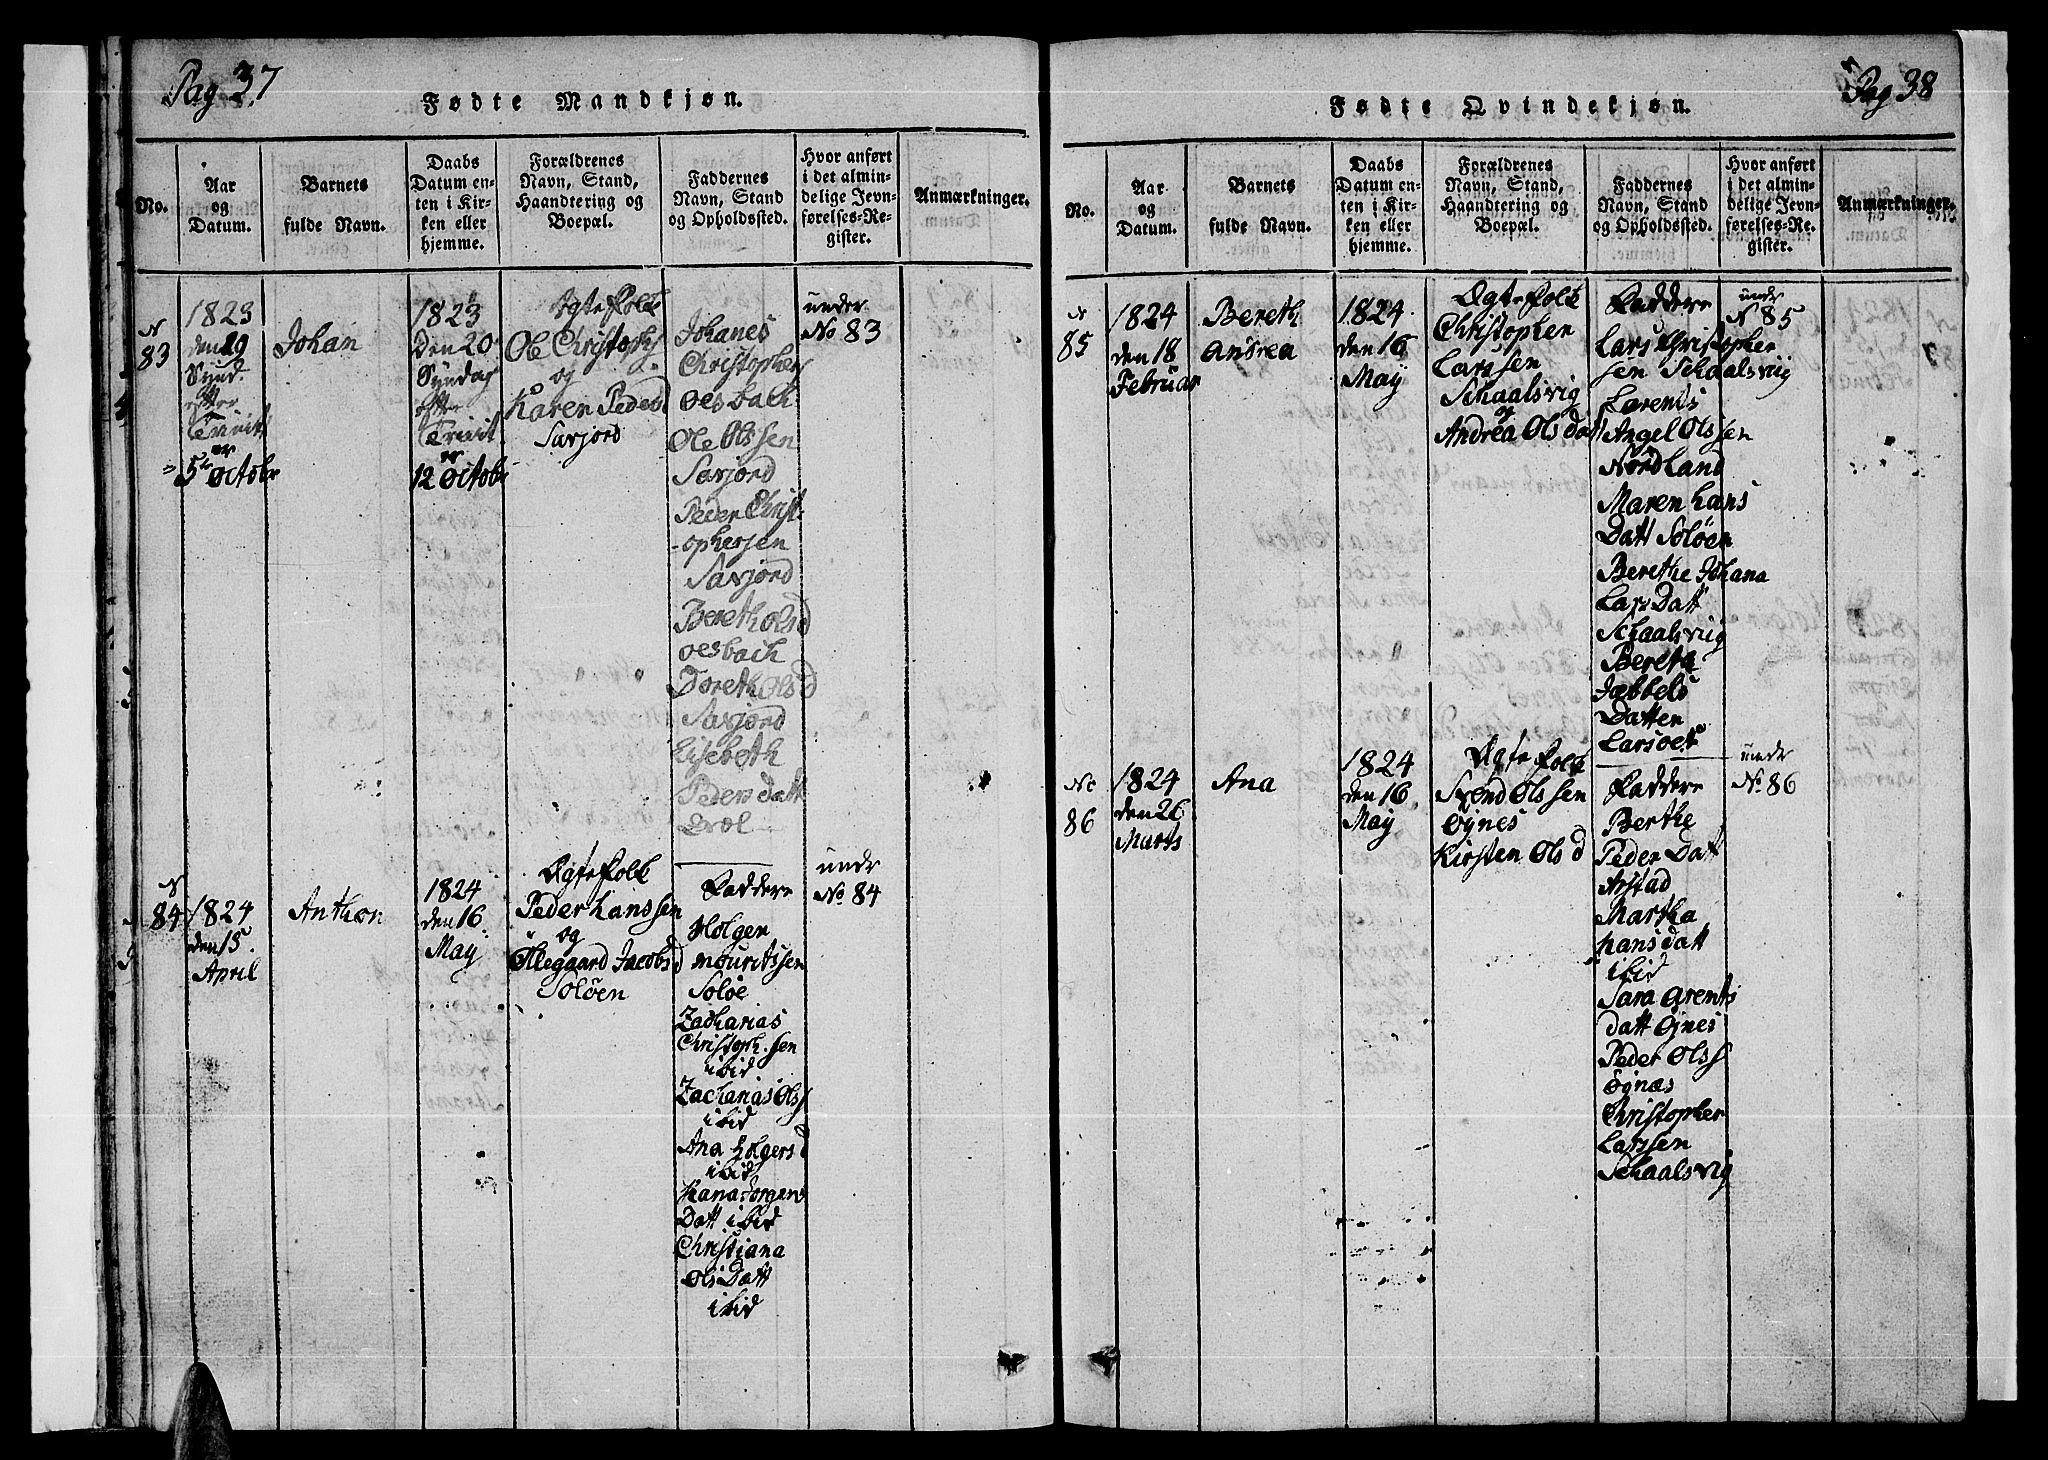 Pag 37
Fødte Mandkjøn.
No.
Aar
og
Datum.
Barnets
fulde Navn.
Daabs
Datum en-
ten i Kir-
ken eller
hjemme.
Forældrenes
Navn, Stand,
Haandtering og
Boepæl.
Faddernes
Navn, Stand
og Opholdssted.
Hvor anført
i det almin-
delige Jevn-
førelses-Re-
gister.
Anmærkninger.
N
83
1823
den 29
Synd.
efter
Trinit
er
5te Octobr
Johan
1823
den 20
Syndag
efter
Trinit
er
12 Octobr
Ægte Folk
Ole Christophs
og
Karen Peders
Savjord
Johanes
Christophers
Oesbach
Ole Olssen
Savjord
Peder Christ
-ophersen
Savjord
Bereth Olsd
oesbach
Doreth Olsd
Savjord
Elisebeth
Peders datt
under
No 83
N
84
1824
den 15
April
Anthon
1824
den 16
May
Ægte Folk
Peder Hanssen
og
Ollegaard Jacobsd
Soløen
Faddere
Holger
Mouritssen
Soløe
Zacharias
Christoph.sen
ibid
Zacharias Olss
ibid
Ana Holgersd
ibid
Hana Jorgens
Datt ibid
Christiana
Ols Datt
ibid
undr
No 84
Pag 38
Fødte Qvindekjøn.
No.
Aar
og
Datum.
Barnets
fulde Navn.
Daabs
Datum en-
ten i Kir-
ken eller
hjemme.
Forældrenes
Navn, Stand,
Haandtering og
Boepæl.
Faddernes
Navn, Stand
og Opholdssted.
Hvor anført
i det almin-
delige Jevn-
førelses-Re-
gister.
Anmærkninger.
N
85
1824
den 18
Februar
Bereth
Andrea
1824
den 16
May
Ægte Folk
Christopher
Larssen
Schaalsvig
og
Andrea Ols datt
Faddere
Lars Christopher
sen Schaalsviig
Larents
Angel Olssen
Nordland
Maren Hans
Datt Soløen
Berethe Johana
Lars Datt
Schaalsviig
Bereth
Jæbbels
Datter
Larsoet
unde
N 85
No
86
1824
den 26
Marts
Ana
1824
den 16
May
Ægte Folk
Svend Olssen
Øynes
Kirsten Olsd
Faddere
Berthe
Peder Datt
Arstad
Martha
Hans datt
ibid
Sara Arents
datt Øynes
Peder Olss
Øynæs
Christopher
Larssen
Schaalsvig
undr
No 86